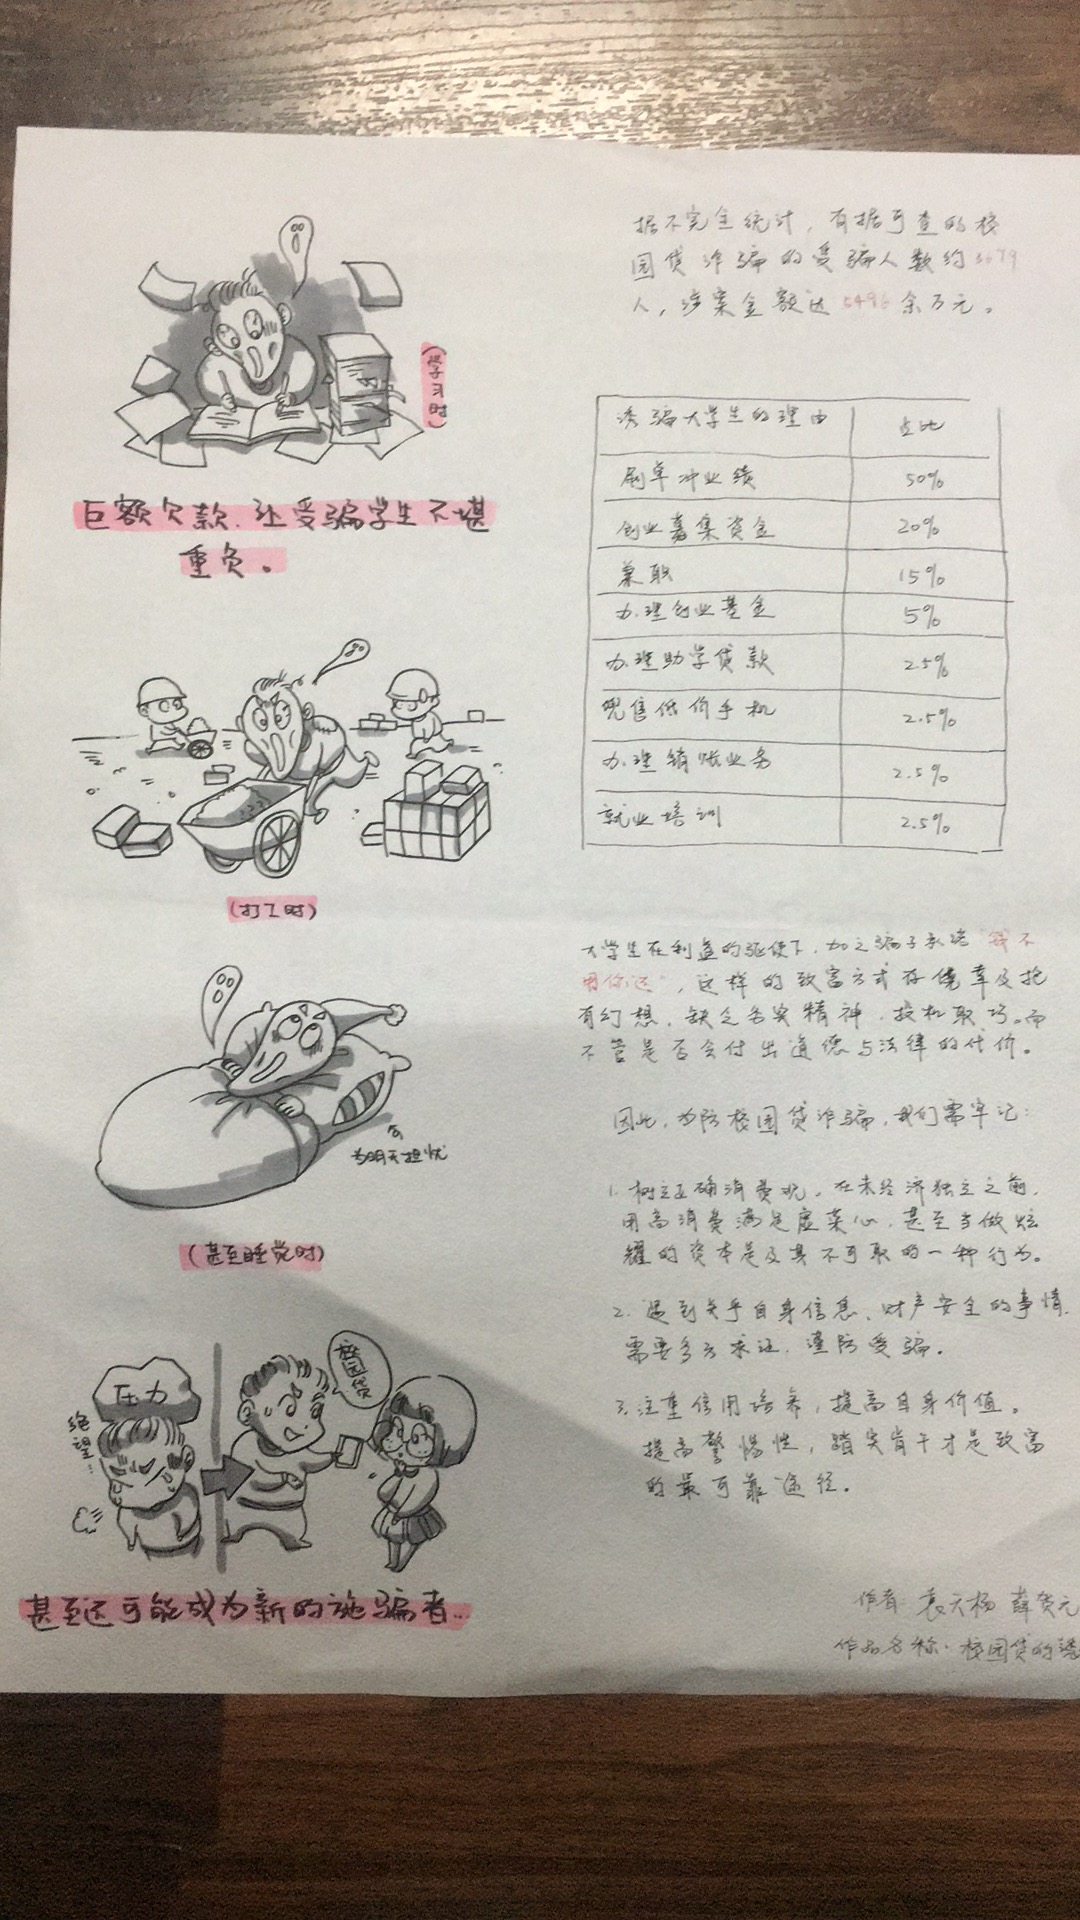 (学习时)
巨额欠款,让受骗学生不堪
重负。
(打工时)
为明天担忧
(甚至睡觉时)
压力
绝望...
校园贷
甚至还可能成为新的施骗者...
据不完全统计,有据可查的校
园贷诈骗的受骗人数约3679
人,涉案金额达5496余万元。
诱骗大学生的理由 占比
刷单冲业绩 50%
创业募集资金 20%
兼职 15%
办理创业基金 5%
办理助学贷款 2.5%
兜售低价手机 2.5%
办理销账业务 2.5%
就业培训 2.5%
大学生在利益的驱使下,加之骗子承诺“钱不
用你还”,这样的致富方式存侥幸及抱
有幻想,缺乏务实精神,投机取巧。而
不管是否会付出道德与法律的代价。
因此,为防校园贷诈骗,我们需牢记:
1.树立正确消费观。在未经济独立之前,
用高消费满足虚荣心,甚至当做炫
耀的资本是及其不可取的一种行为。
2.遇到关乎自身信息、财产安全的事情,
需要多方求证,谨防受骗。
3.注重信用培养,提高自身价值。
提高警惕性,踏实肯干才是致富
的最可靠途径。
作者:袁天杨 薛
作品名称:校园贷的